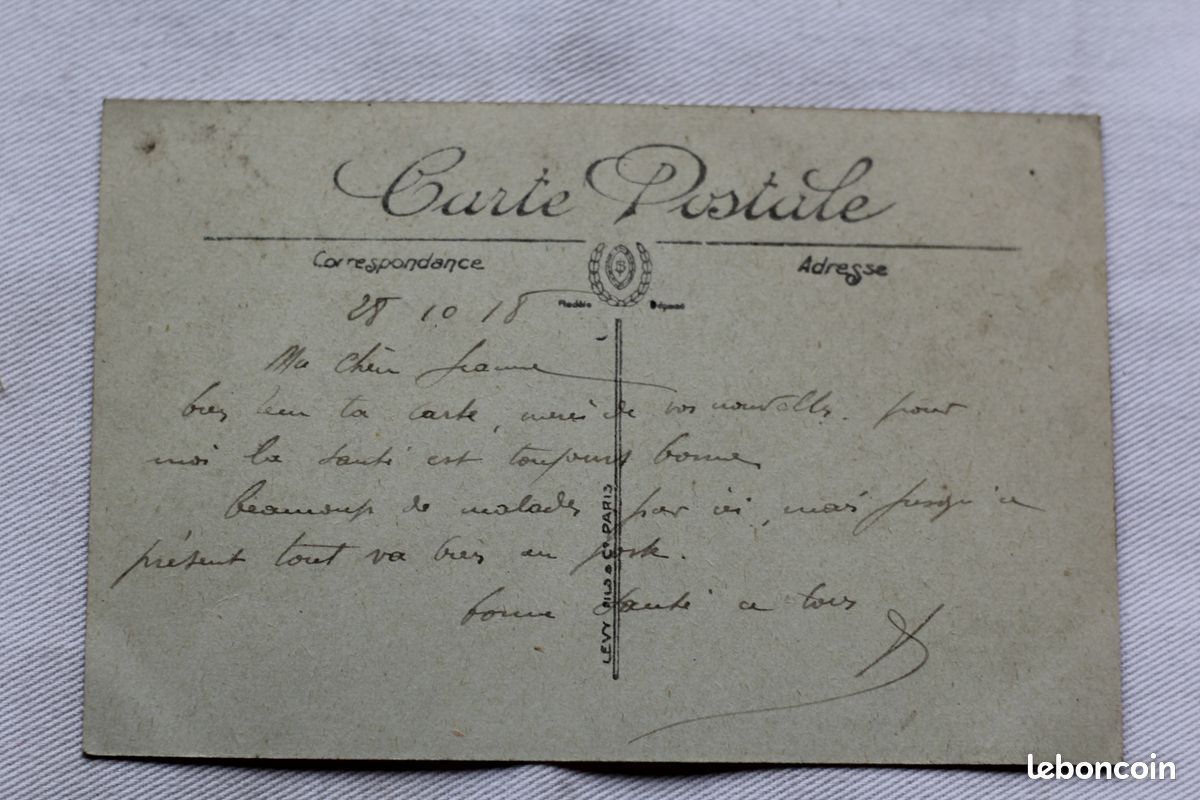 Carte Postale
Correspondance
Adresse
Modèle Déposé
28 10 18
Ma chère Jeanne
bien ta carte, merci de vos nouvelles. pour
moi la santé est toujours bonne
beaucoup de malades par ici, mais jusqu'à
présent tout va bien au poste.
bonne santé a tous
LEVY FILS & Cº PARIS
leboncoin